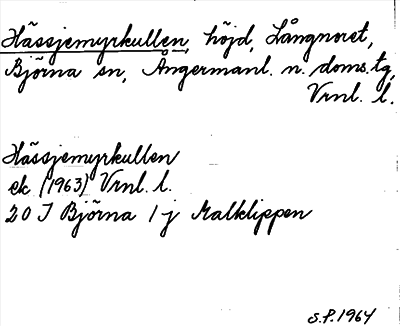 Hässjemyrkullen, höjd, Långnoret,
Björna sn, Ångermanl. n. doms. tg,
Vrnl. l.
Hässjemyrkullen
ek (1963) Vrnl. l.
20 J Björna 1 j Malklippen
S.P. 1964